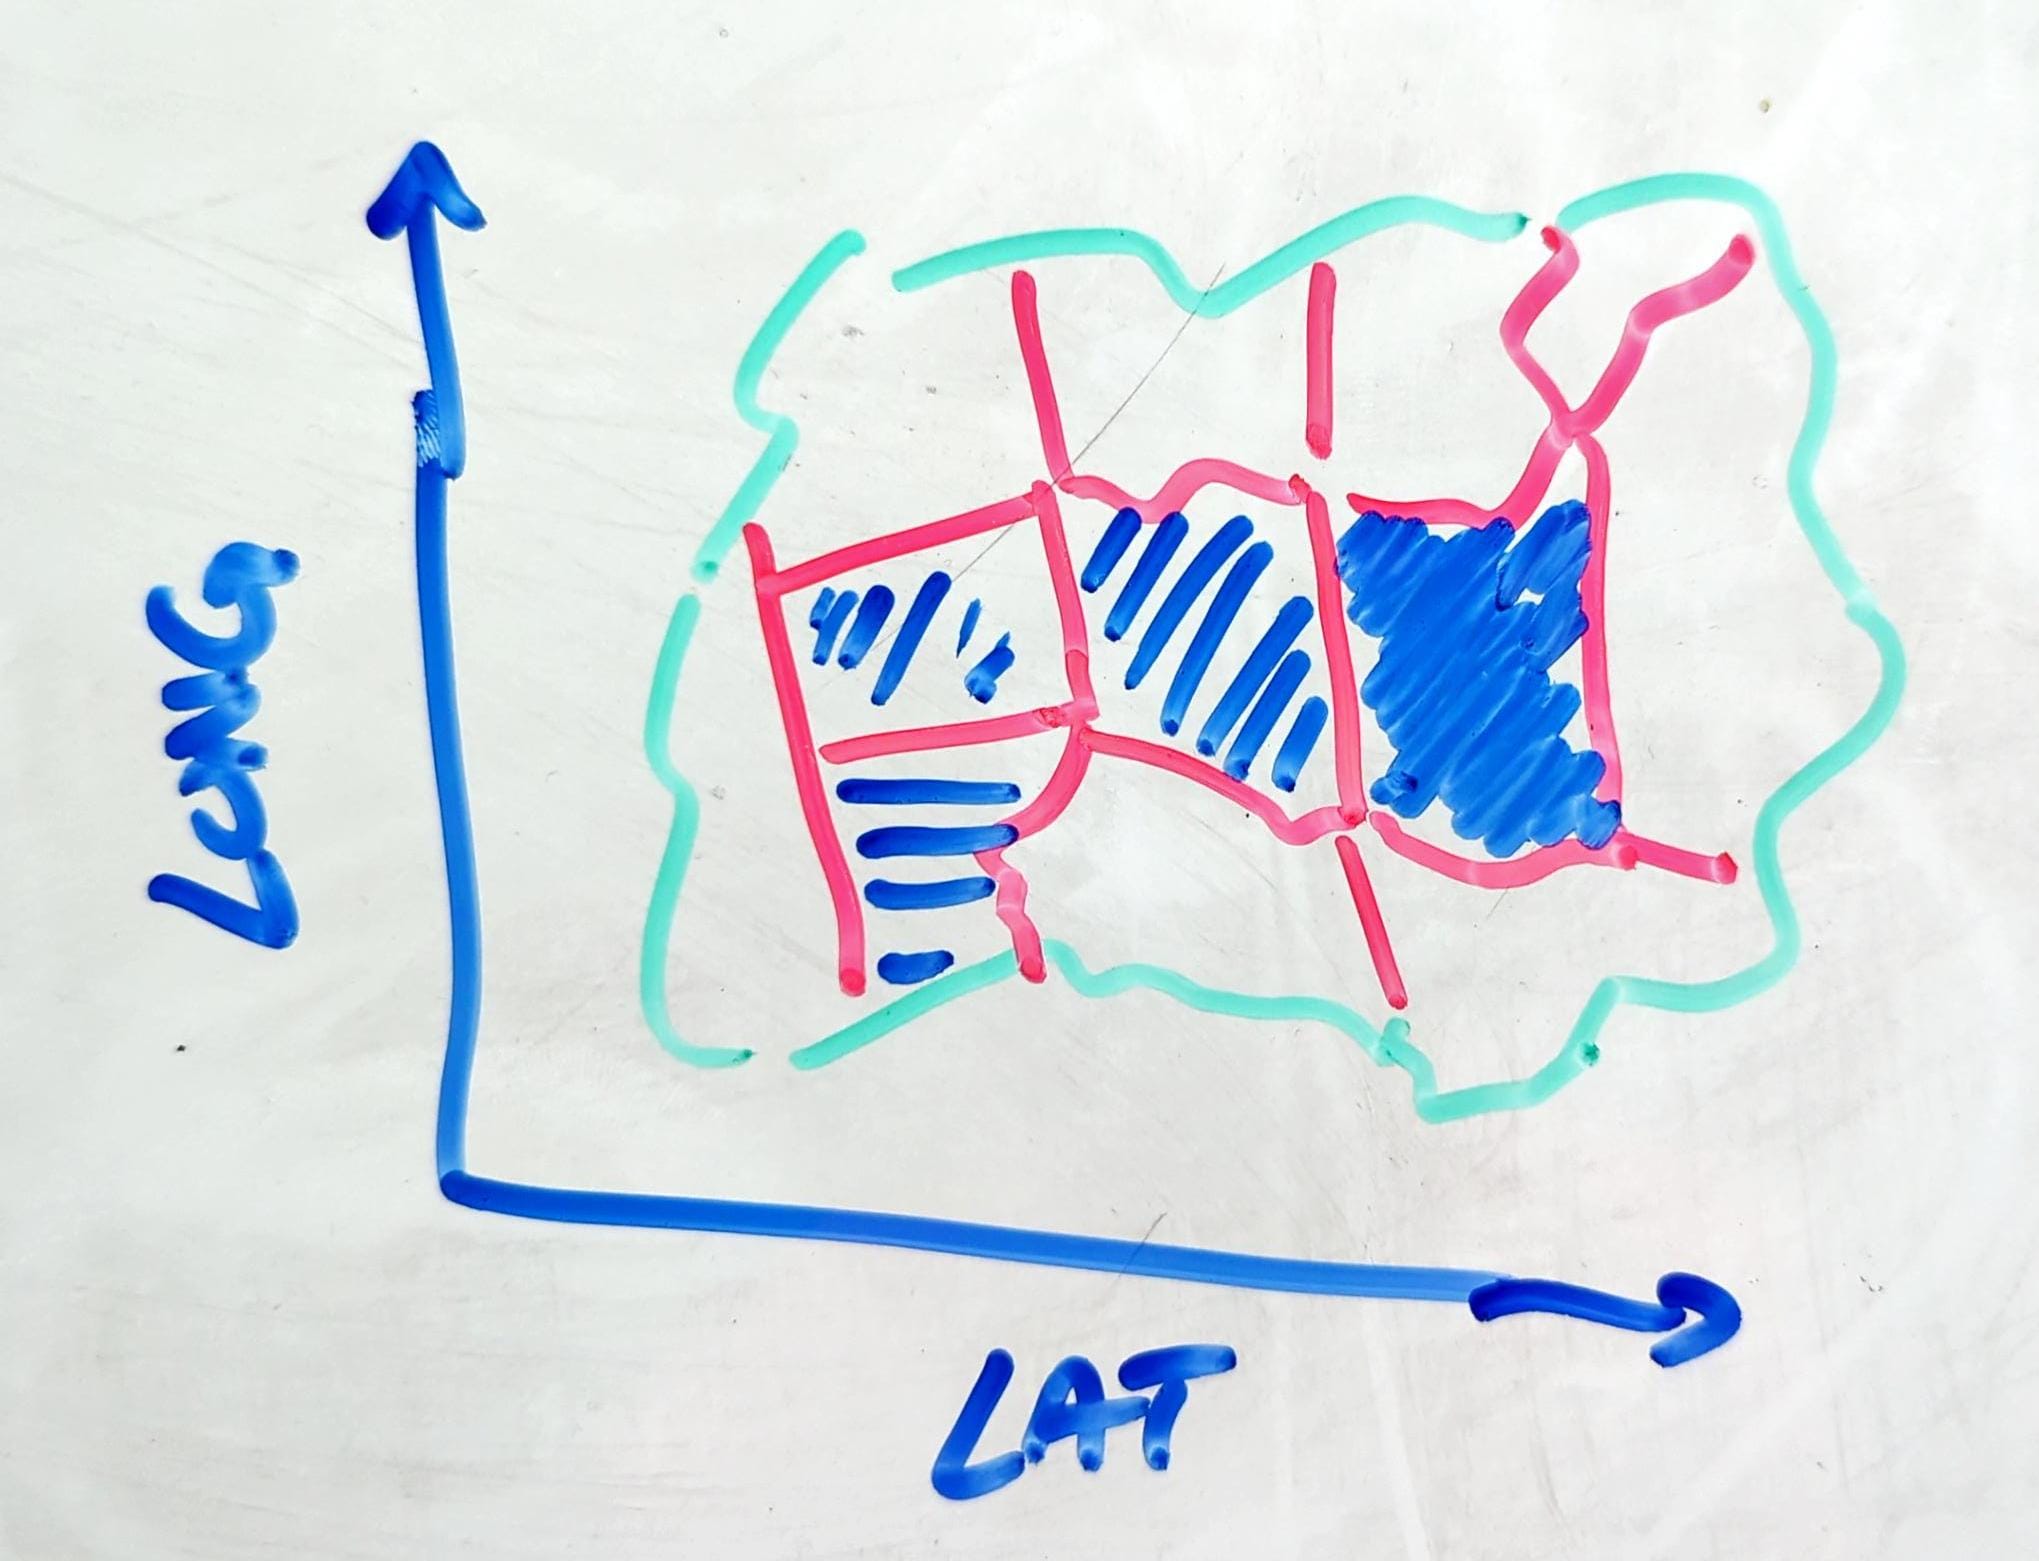 LONG
LAT